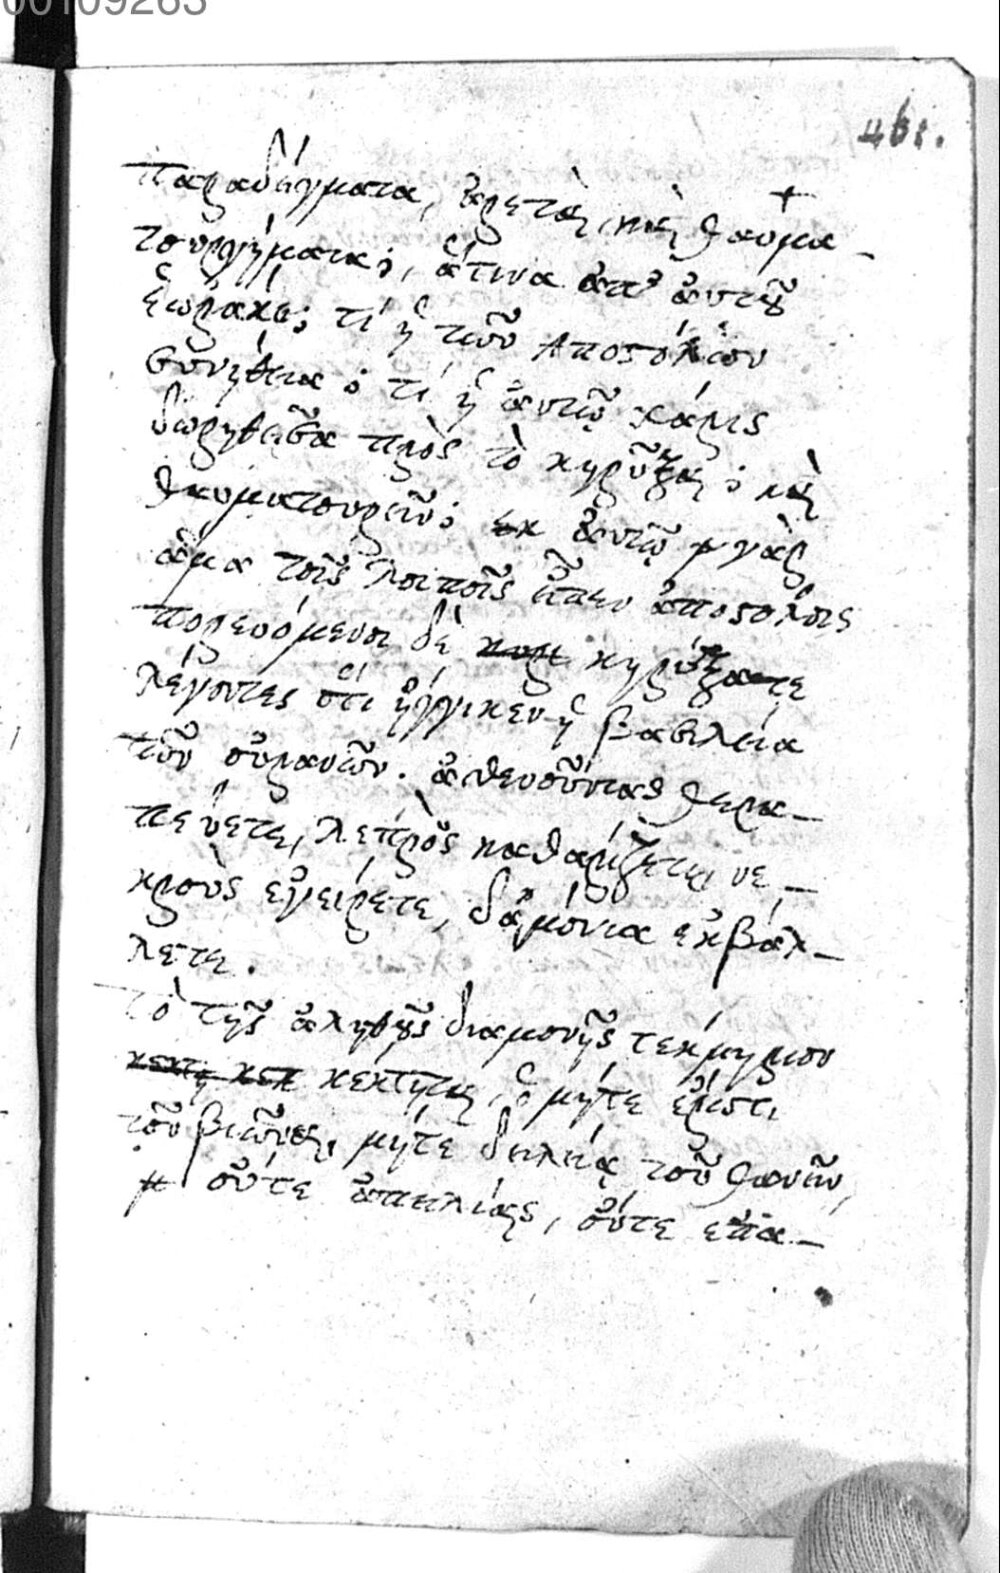 00109263
461.
παραδείγματα, ἀρεταὶ, καὶ θαυμα-
τουργήματα; ἅτινα ἀπ' αὐτοῦ
ἑώρακε; τί ἡ τῶν Αποστόλων
συνήθεια; τί ἡ αὐτῷ χάρις
δωρηθεῖσα πρὸς τὸ κηρῦξαι; καὶ
θαυματουργεῖν; αὐτῷ γὰρ
ἅμα τοῖς λοιποῖς εἶπεν ἀποστόλοις
πορευόμενοι δὲ κηρύξατε
λέγοντες ὅτι ἤγγικεν ἡ βασιλεία
τῶν οὐρανῶν. ἀσθενοῦντας θερα-
πεύετε, λεπροὺς καθαρίζετε, νε-
κροὺς εγείρετε, δαιμόνια εκβάλ-
λετε.
τὸ τῆς ἀληθοῦς διαμονῆς τεκμήριον
κέκτηται, ὁ μήτε ἐρῶτι
τοῦ βιῶναι, μήτε δειλίᾳ τοῦ θανεῖν,
οὔτε ἀπειλίαις, οὔτε επα-